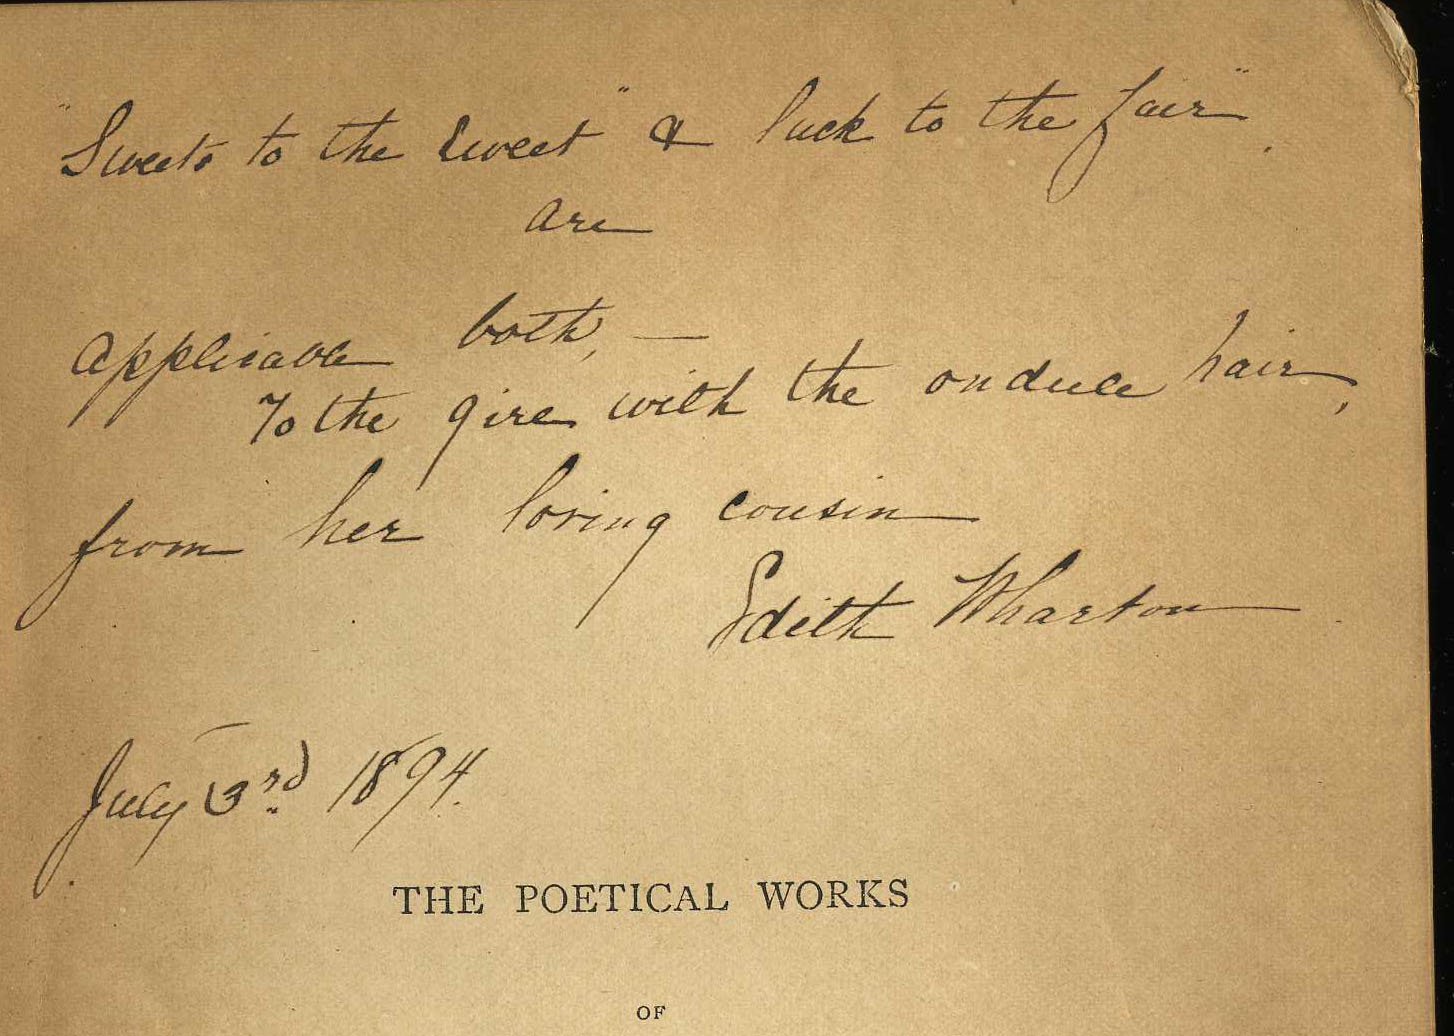 "Sweets to the Sweet" & luck to the fair"
are
applicable both, —
To the girl with the ondule hair,
from her loving cousin
Edith Wharton
July 3rd 1894.
THE POETICAL WORKS
OF